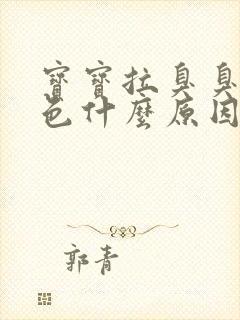 寶寶拉臭臭
色什麼原因
郭青